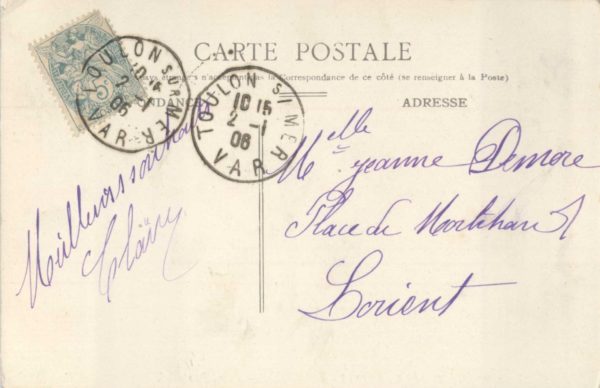 CARTE POSTALE
pays étrangers n'acceptent pas la Correspondance de ce côté (se renseigner à la Poste)
NDANCE
ADRESSE
TOULON SUR MER
10 15
2 -1
06
VAR
TOULON S/ MER
10 15
2 -1
06
VAR
5
Meilleurs souhaits
Melle Jeanne Demore
Place du
Lorient